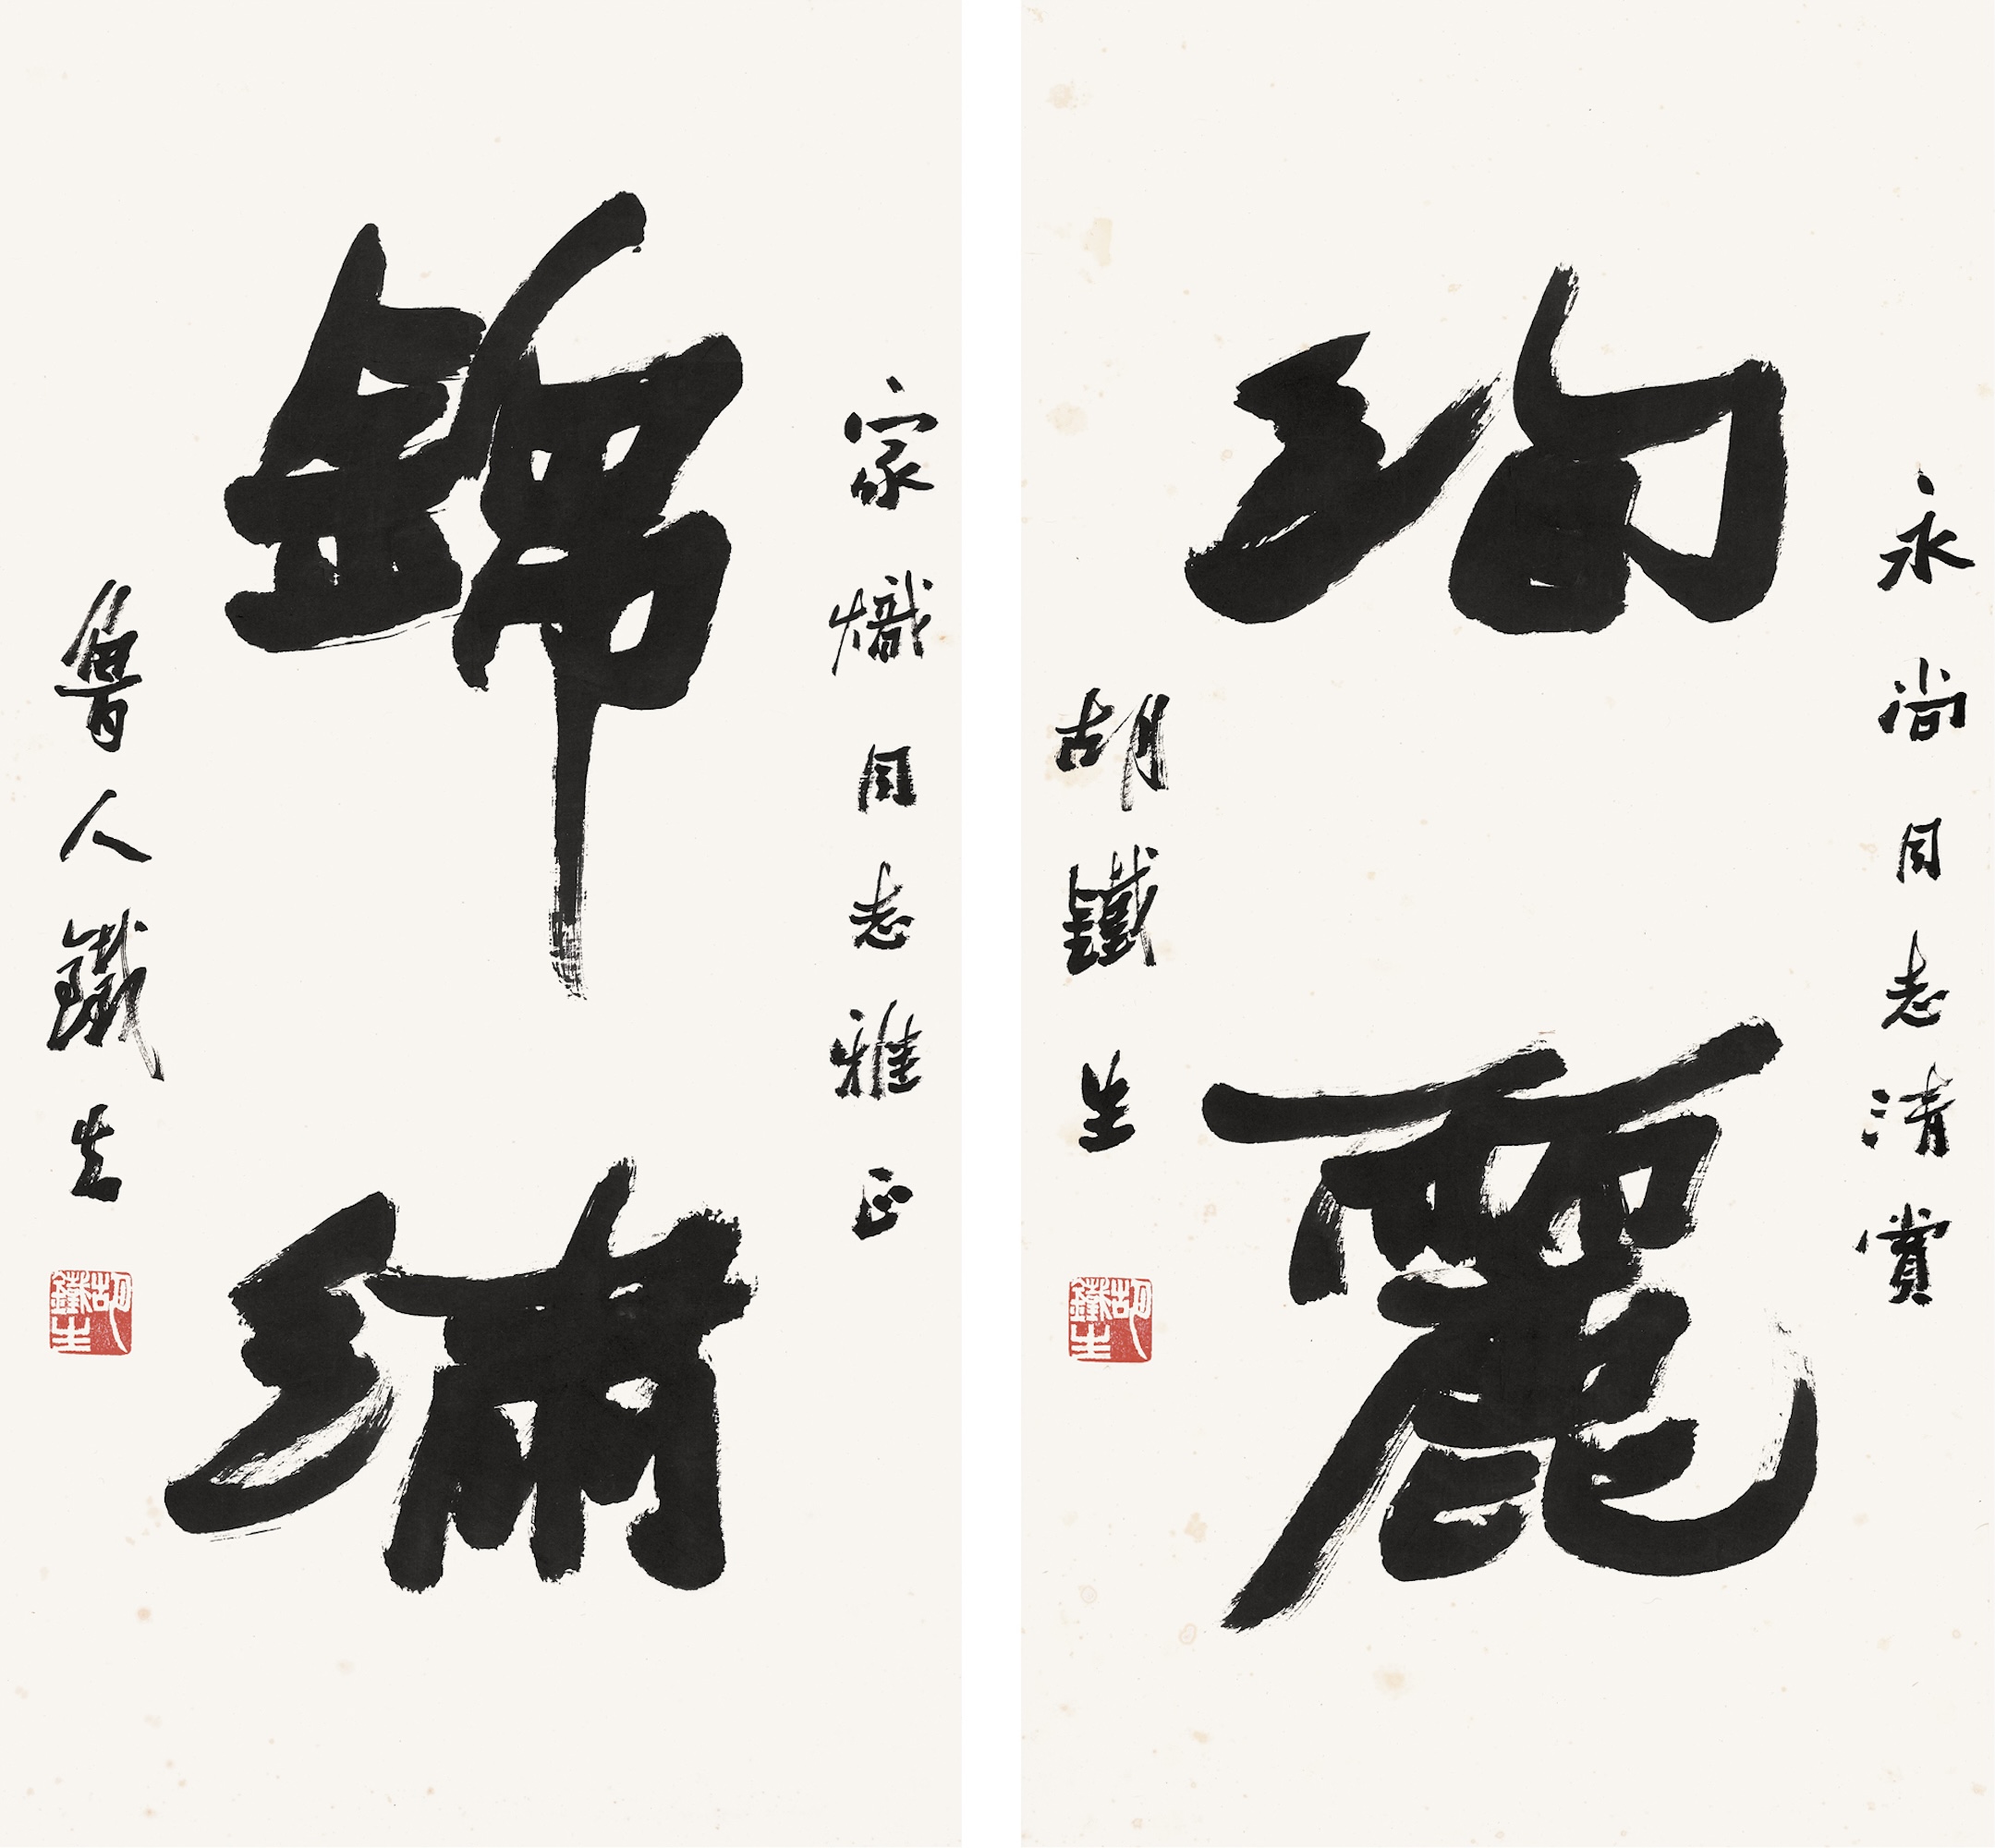 永尚同志清賞
絢麗
胡鐵生
胡鐵生
家熾同志雅正
錦繡
魯人鐵生
胡鐵生